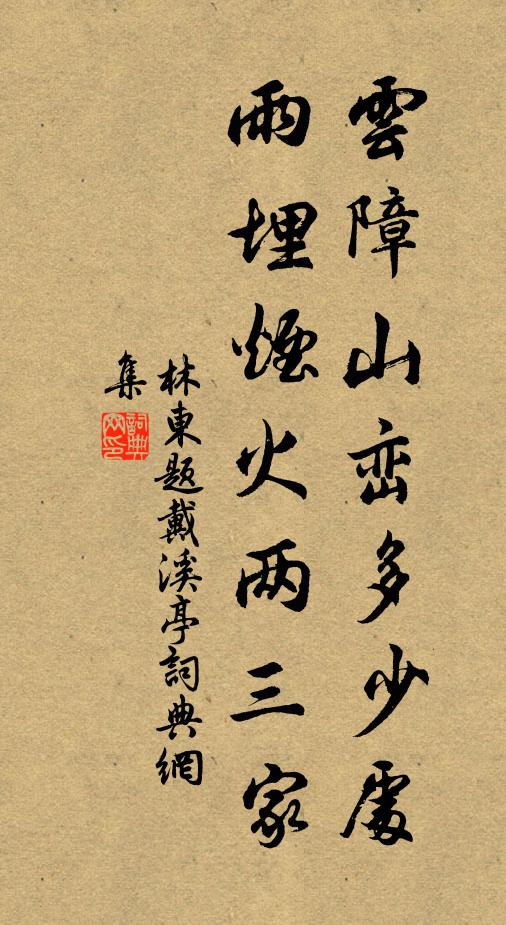 雲障山峦多少處
雨埋煙火两三家
林東题戴溪亭詞典網
集
詞典
网印